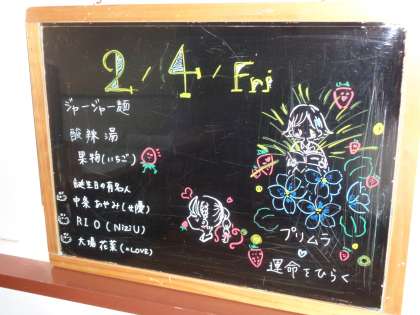 2/4/Fri
ジャージャー麺
酸辣湯
果物(いちご)
誕生日の有名人
中条あやみ(女優)
RIO(NiziU)
大場花菜(=LOVE)
プリムラ
運命をひらく